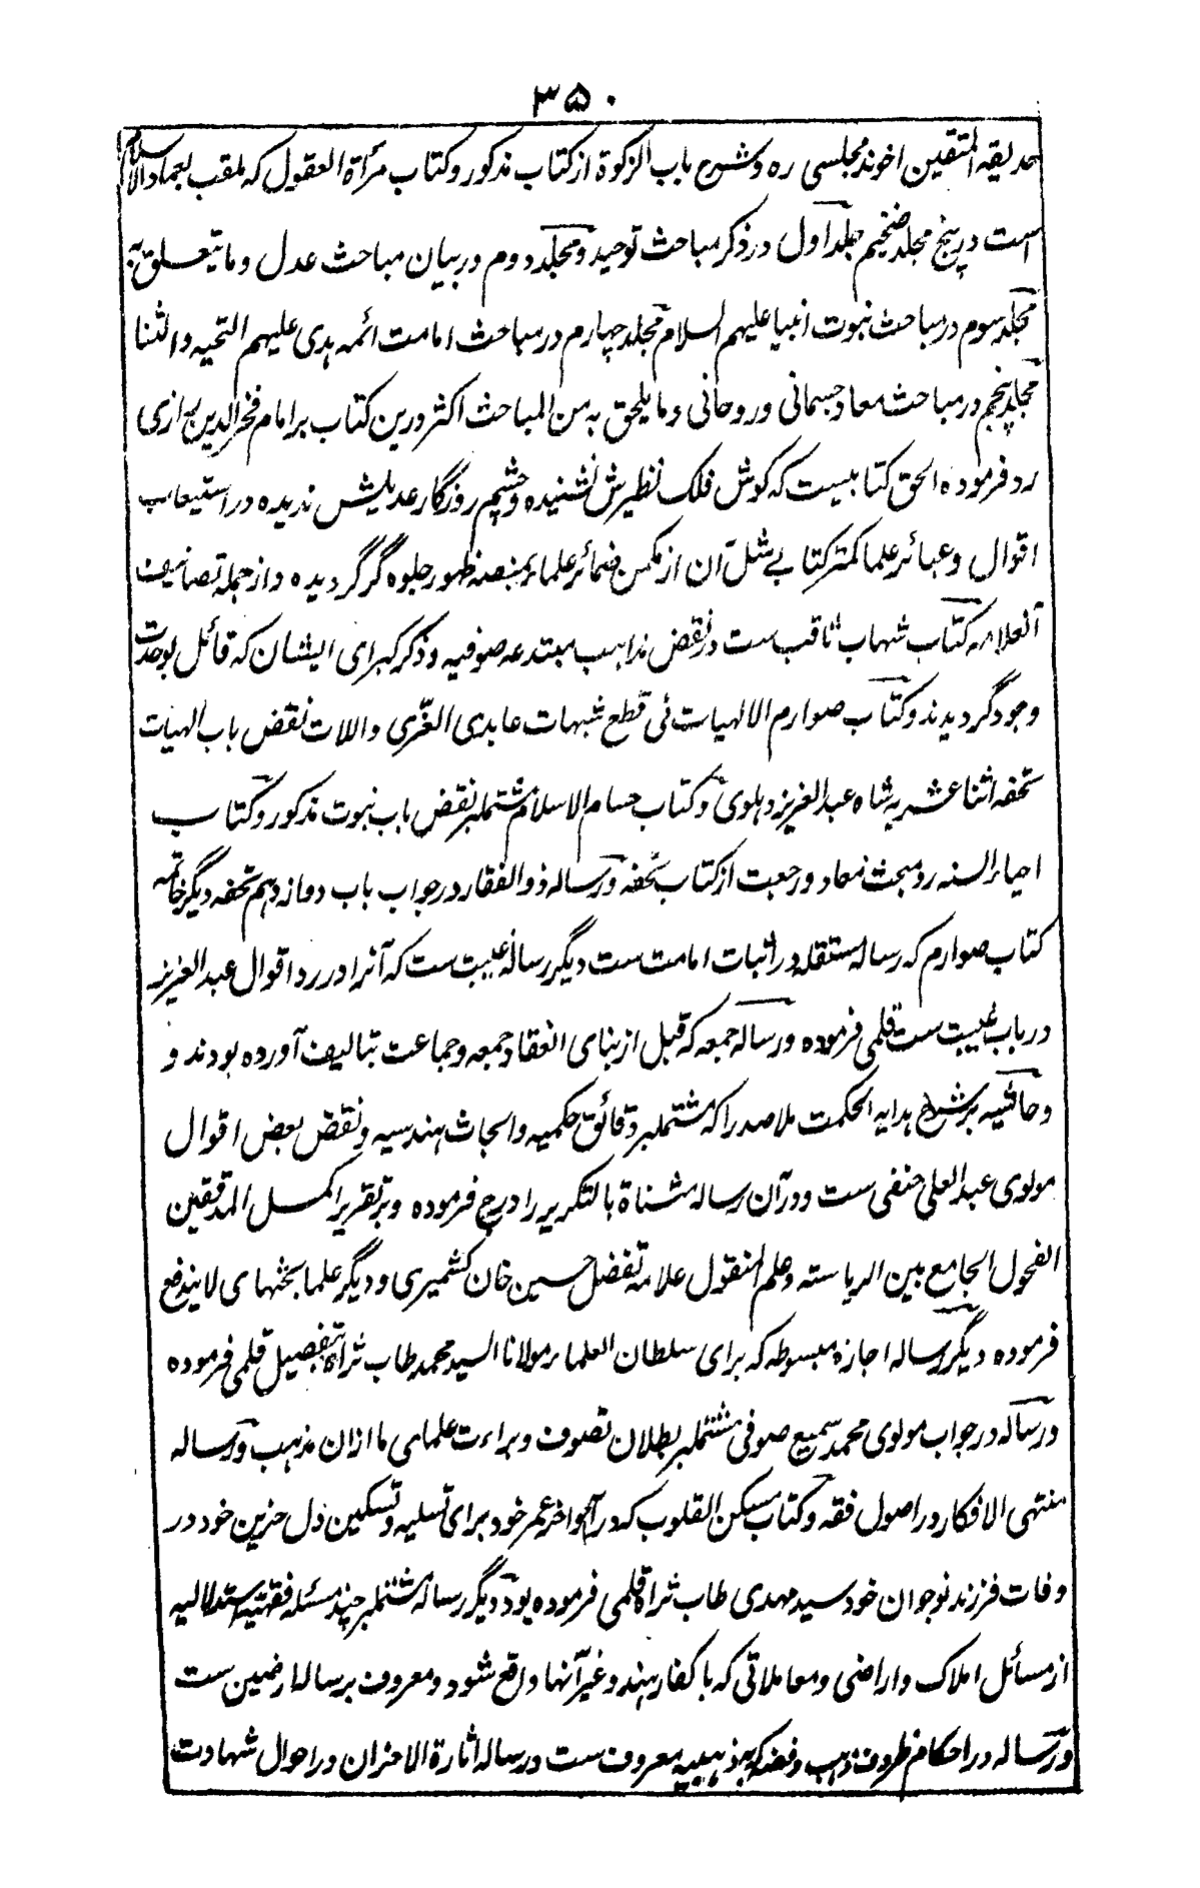 ۳۵۰
حدیقه المتقین اخوند مجلسی ره و شرح باب الزکوة از کتاب مذکور و کتاب مرأة العقول که ملقب بعماد الاسلام
است در پنج مجلد ضخیم جلد اول در ذکر مباحث توحید و مجلد دوم در بیان مباحث عدل و ما یتعلق به
مجلد سوم در مباحث نبوت انبیا علیهم السلام مجلد چهارم در مباحث امامت ائمه هدی علیهم التحیه والثنا
مجلد پنجم در مباحث معاد جسمانی و روحانی و ما یلحق به من المباحث اکثر درین کتاب بر امام فخر الدین رازی
رد فرموده الحق کتابیست که گوش فلک نظیرش نشنیده و چشم روزگار عدیلش ندیده در استیعاب
اقوال و عبائر علما کمتر کتابی مثل آن از مکمن ضمائر علماء بمنصه ظهور جلوه گر گردیده و از جمله تصانیف
آنعلامه کتاب شهاب ثاقب ست در نقض مذاهب مبتدعه صوفیه و ذکر کبرای ایشان که قائل بوحدت
وجود گردیدند و کتاب صوارم الالهیات فی قطع شبهات عابدی العُزّی واللات نقض باب الهیات
تحفه اثنا عشریه شاه عبد العزیز دهلوی و کتاب حسام الاسلام مشتملبر نقض باب نبوت مذکور و کتاب
احیاء السنه رد مبحث معاد و رجعت از کتاب تحفه و رساله ذو الفقار در جواب باب دوازدهم تحفه دیگر خاتمه
کتاب صوارم که رساله مستقله در اثبات امامت ست دیگر رساله غیبت ست که آنرا در رد اقوال عبد العزیز
در باب غیبت ست قلمی فرموده و رساله جمعه که قبل از بنای انعقاد جمعه و جماعت بتالیف آورده بودند و
و حاشیه بر شرح هدایه الحکمت ملا صدرا که مشتملبر دقائق حکمیه و ابحاث هندسیه و نقض بعض اقوال
مولوی عبد العلی حنفی ست و در آن رساله مثناة بالتکریر را درج فرموده و بر تقریر اکمل المدققین
الفحول الجامع بین الریاسته و علم المنقول علامه تفضل حسین خان کشمیری و دیگر علما بحثهای لا یندفع
فرموده دیگر رساله اجازه مبسوطه که برای سلطان العلماء مولانا السید محمد طاب ثراه بتفصیل قلمی فرموده
و رساله در جواب مولوی محمد سمیع صوفی مشتملبر بطلان تصوف و براءت علمای ما ازان مذهب و رساله
منتهی الافکار در اصول فقه و کتاب مسکن القلوب که در آواخر عمر خود برای تسلیه و تسکین دل حزین خود در
وفات فرزند نوجوان خود سید مهدی طاب ثراه قلمی فرموده بود دیگر رساله مشتملبر چند مسئله فقهیه استدلالیه
از مسائل املاک و اراضی و معاملاتی که با کفار هند و غیر آنها واقع شود و معروف برساله ارضین ست
و رساله در احکام ظروف ذهب و فضه که بذهبیه معروف ست و رساله اثارة الاحزان در احوال شهادت